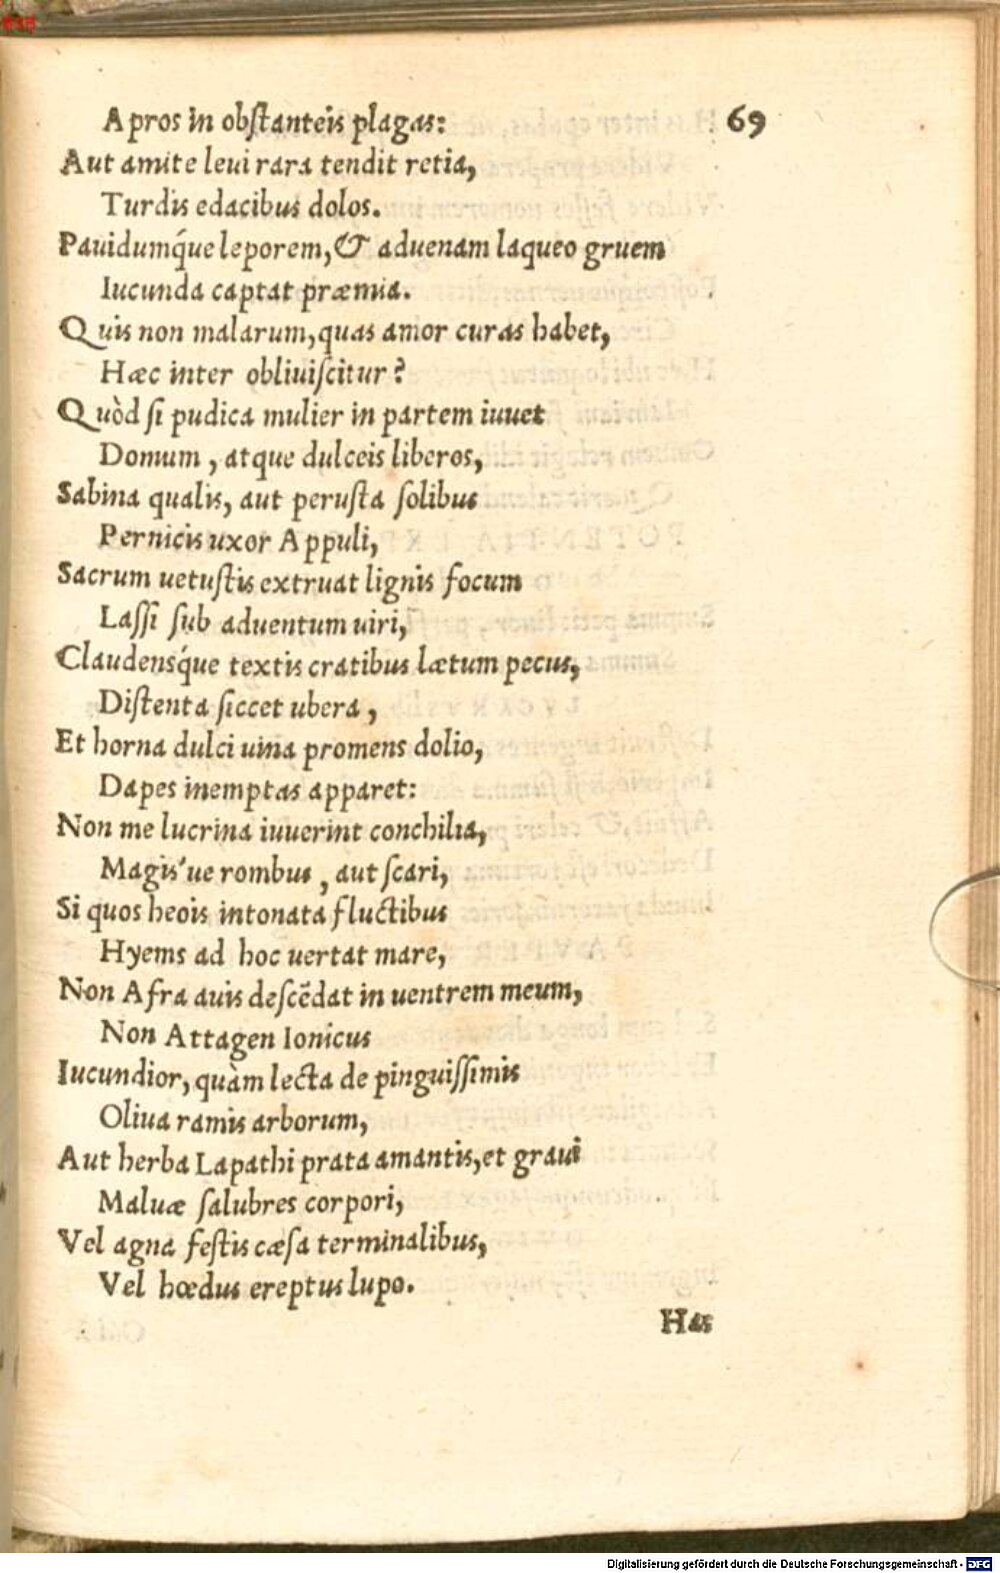 Apros in obſtanteis plagas: 69
Aut amite leui rara tendit retia,
Turdis edacibus dolos.
Pauidumq́ue leporem, & aduenam laqueo gruem
Iucunda captat præmia.
Quis non malarum, quas amor curas habet,
Hæc inter obliuiſcitur?
Quòd ſi pudica mulier in partem iuuet
Domum, atque dulceis liberos,
Sabina qualis, aut peruſta ſolibus
Pernicis uxor Appuli,
Sacrum uetuſtis extruat lignis focum
Laſſi ſub aduentum uiri,
Claudensq́ue textis cratibus lætum pecus,
Diſtenta ſiccet ubera,
Et horna dulci uina promens dolio,
Dapes inemptas apparet:
Non me lucrina iuuerint conchilia,
Magis'ue rombus, aut ſcari,
Si quos heois intonata fluctibus
Hyems ad hoc uertat mare,
Non Afra auis deſcẽdat in uentrem meum,
Non Attagen Ionicus
Iucundior, quàm lecta de pinguiſſimis
Oliua ramis arborum,
Aut herba Lapathi prata amantis, et graui
Maluæ ſalubres corpori,
Vel agna feſtis cæſa terminalibus,
Vel hœdus ereptus lupo.
Has
Digitalisierung gefördert durch die Deutsche Forschungsgemeinschaft - DFG